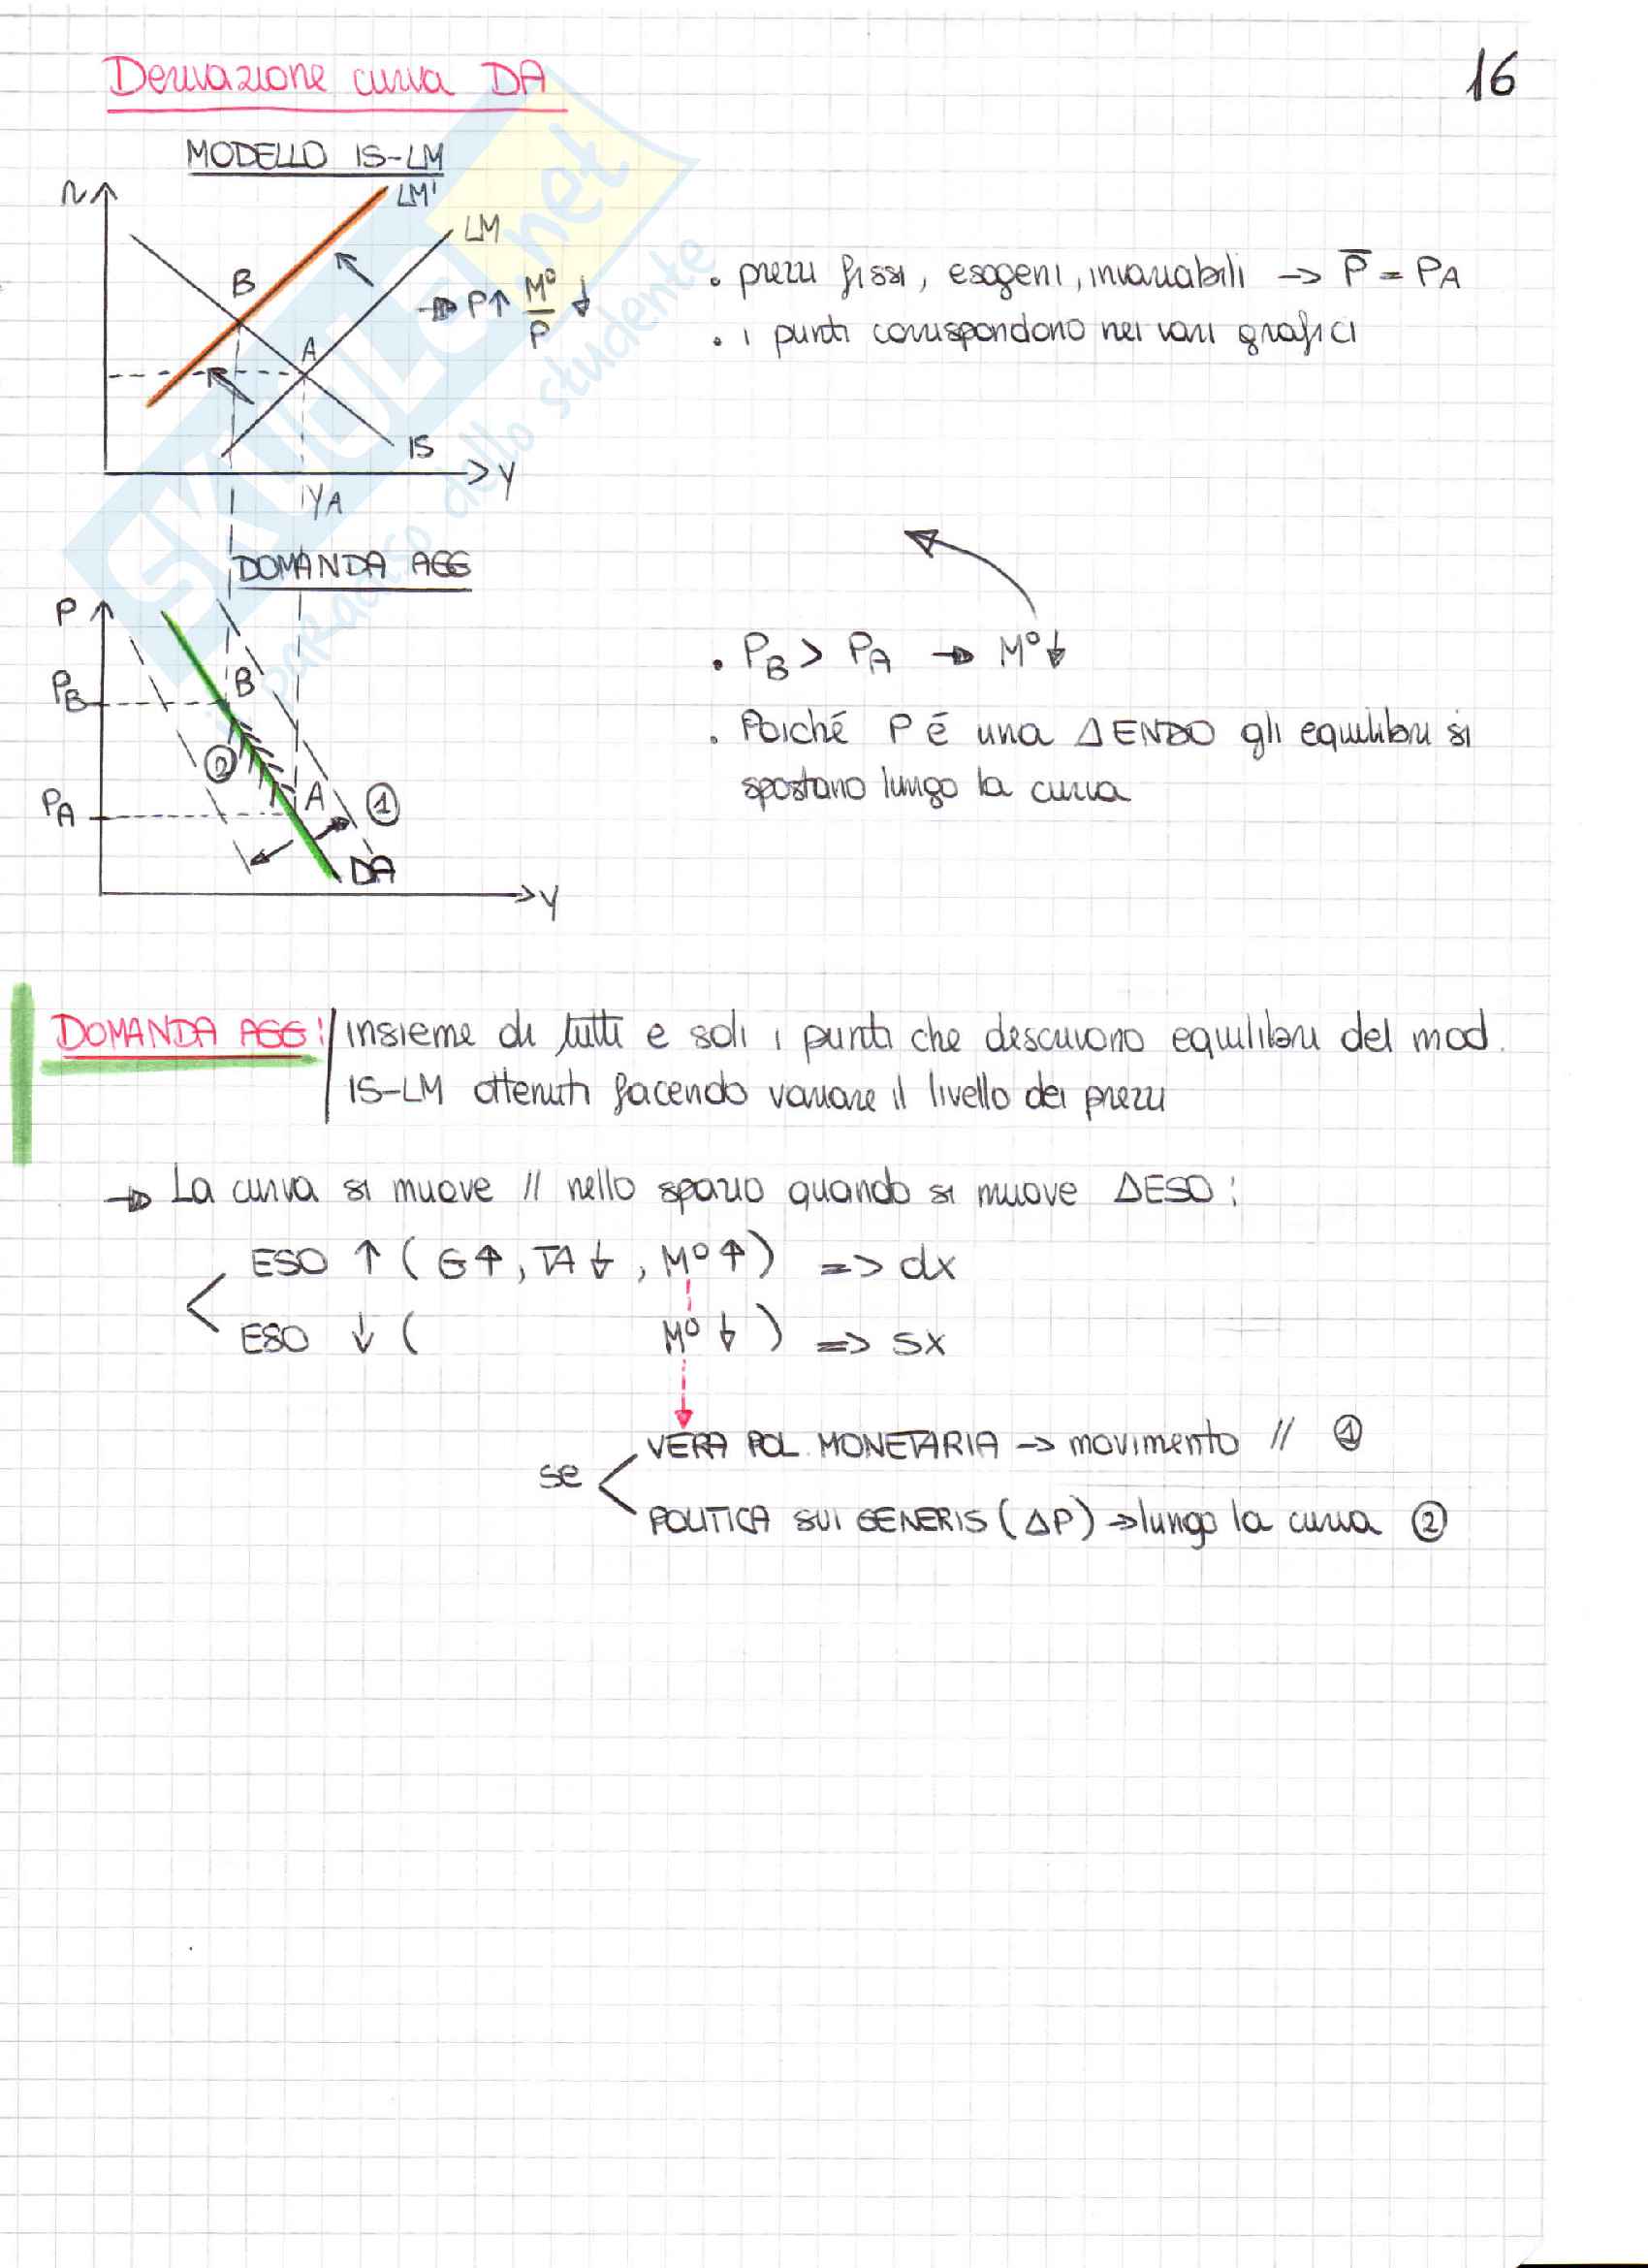 Derivazione curva DA
16
MODELLO IS-LM
r
LM'
LM
B
P↑ M⁰/P ↓
A
IS
Y
YA
. prezzi fissi, esogeni, invariabili → P̅ = PA
. i punti corrispondono nei vari grafici
DOMANDA AGG
P
PB
B
②
PA
A
①
DA
Y
. PB > PA → M⁰↓
. Poiché P é una ΔENDO gli equilibri si
spostano lungo la curva
DOMANDA AGG: insieme di tutti e soli i punti che descrivono equilibri del mod.
IS-LM ottenuti facendo variare il livello dei prezzi
→ La curva si muove // nello spazio quando si muove ΔESO:
ESO ↑ (G↑, TA↓, M⁰↑) => dx
ESO ↓ ( M⁰↓) => sx
se
VERA POL. MONETARIA → movimento // ①
POLITICA SUI GENERIS (ΔP) → lungo la curva ②
SKUOLA.net
il paradiso dello studente